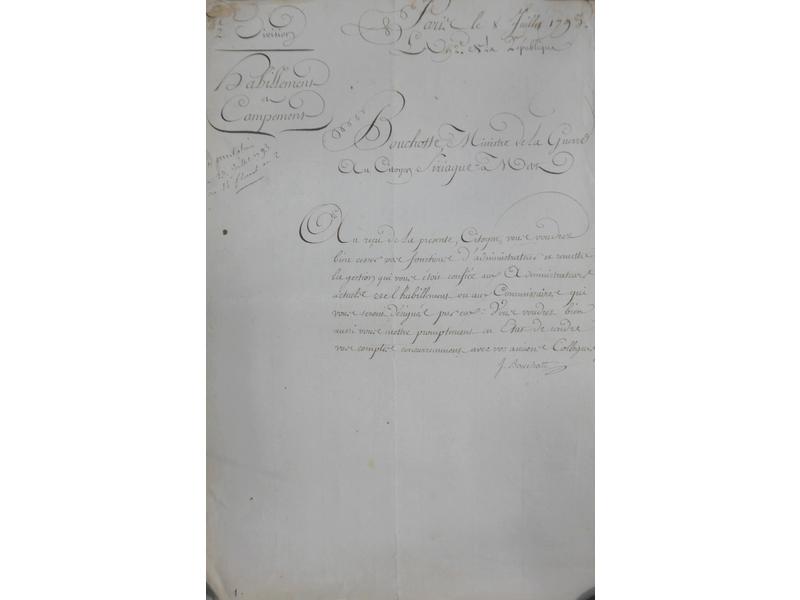 2e Division
Paris, le 8 Juillet 1793.
L'An 2e. de la République
Habillement
et
Campement
Bouchotte, Ministre de la Guerre
Au Citoyen Siriaque à Metz
15 floréal an 2
Au reçu de la présente, Citoyen, vous voudrez
bien cesser vos fonctions d'administrateur et remettre
la gestion qui vous étoit confiée aux Administrateurs
actuels de l'habillement ou aux Commissaires qui
vous seront désignés par eux. Vous voudrez bien
aussi vous mettre promptement en Etat de rendre
vos comptes concurremment avec vos anciens Collègues
J. Bouchotte
1.